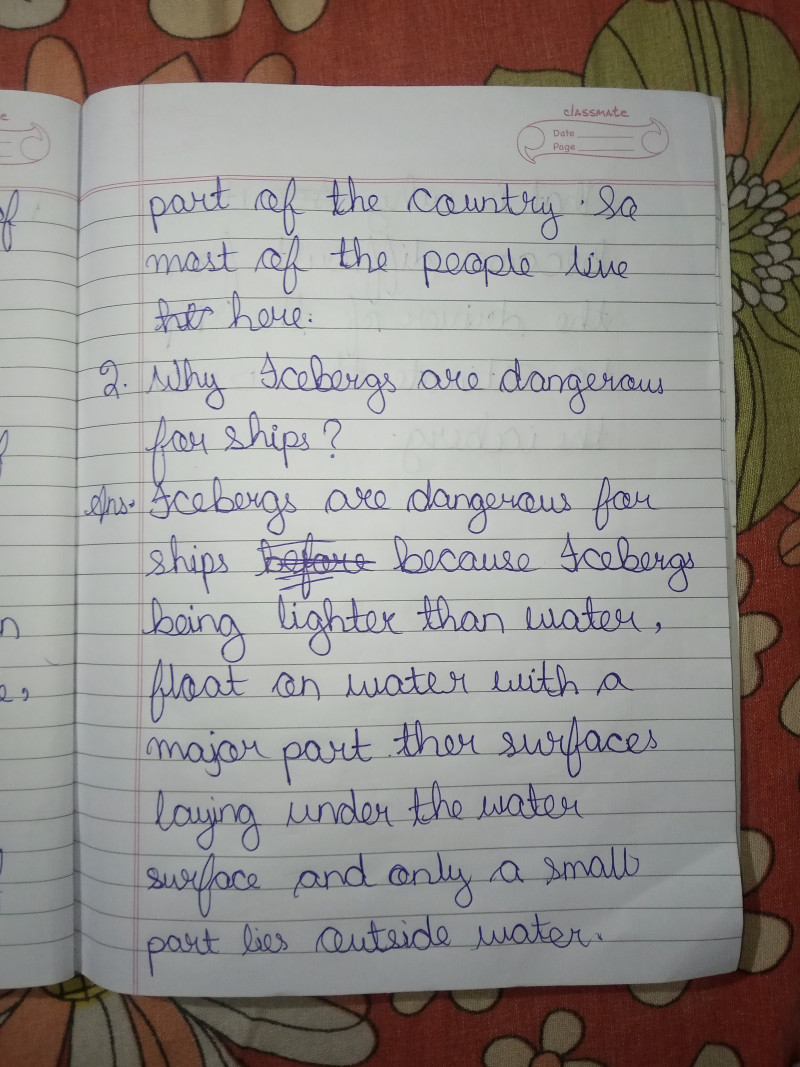 classmate
Date
Page
part of the country. So
most of the people live
here.
2. Why Icebergs are dangerous
for ships?
Ans. Icebergs are dangerous for
ships before because Icebergs
being lighter than water,
float on water with a
major part ther surfaces
laying under the water
surface and only a small
part lies outside water.